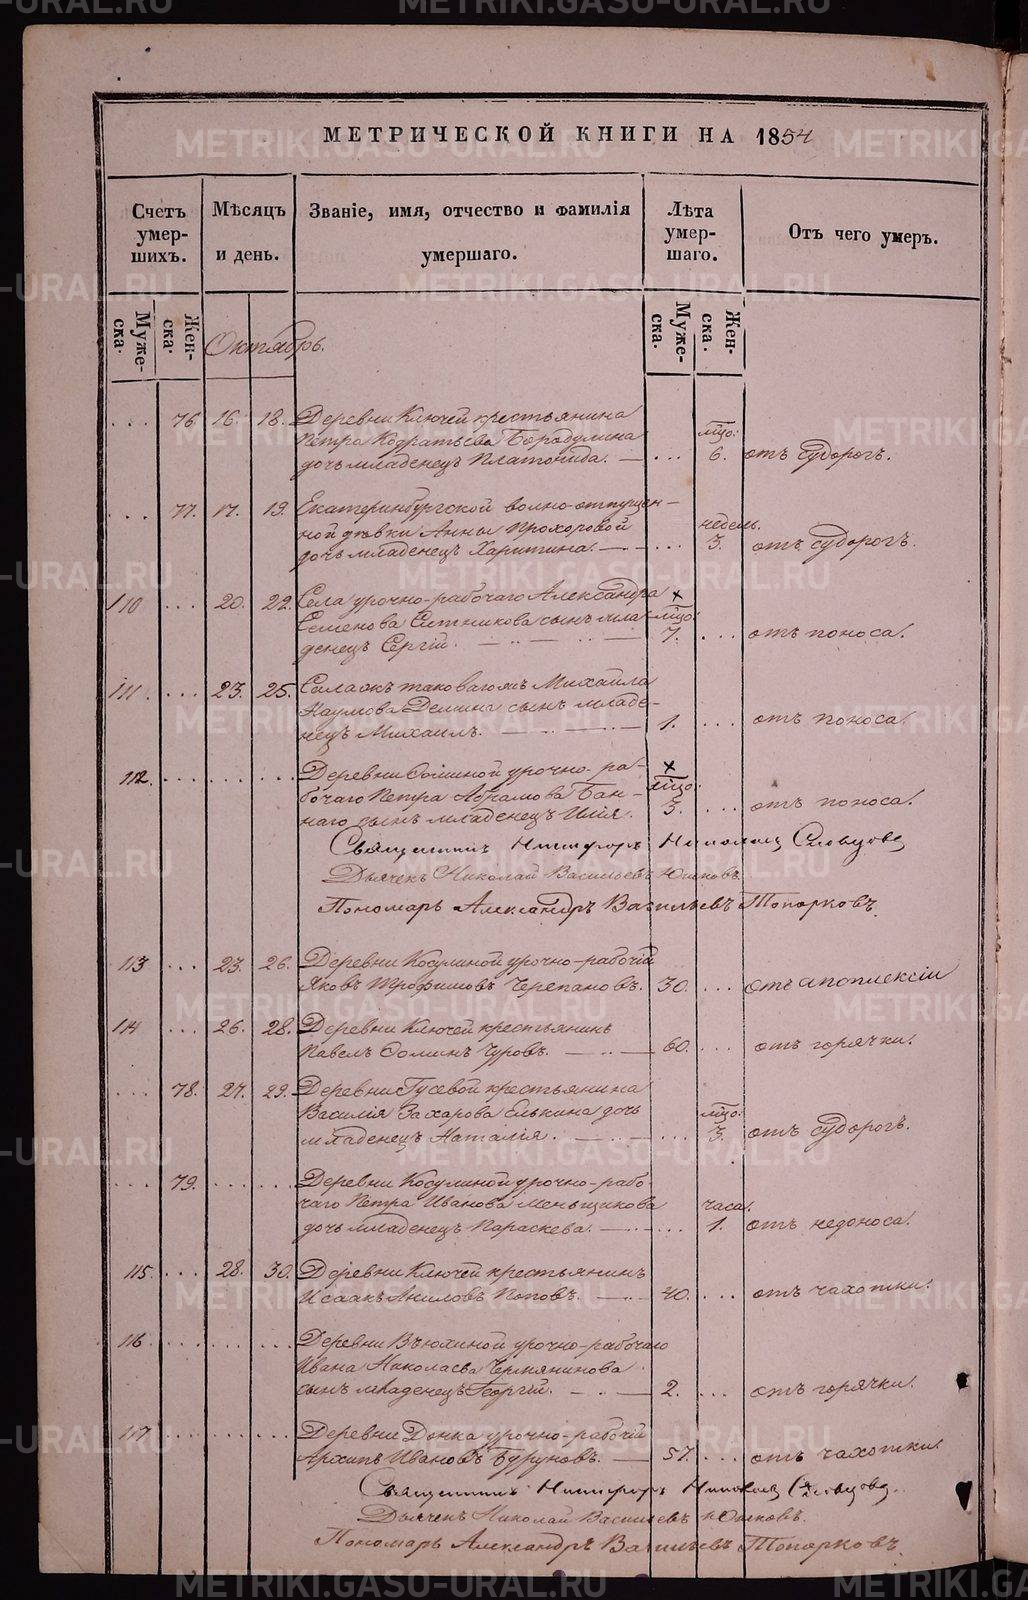 METRIKI.GASO-URAL.RU
МЕТРИЧЕСКОЙ КНИГИ НА 1854
Счетъ умер-шихъ.
Мѣсяцъ и день.
Званіе, имя, отчество и фамилія умершаго.
Лѣта умер-шаго.
Отъ чего умеръ.
Муже-ска.
Жен-ска.
Октябрь.
Муже-ска.
Жен-ска.
... 76. 16. 18. Деревни Ключей крестьянина
Петра Кодратьева Бородулина мѣс:
дочь младенецъ Платонида. — ... 6. отъ судорогъ.
... 77. 17. 19. Екатеринбургской волно-отпущен-
ной дѣвки Анны Прохоровой недель.
дочь младенецъ Харитина. — ... 3. отъ судорогъ.
110 ... 20. 22. Села урочно-рабочаго Александра ×
Семенова Ситникова сынъ мла- мѣс:
денецъ Сергій. — 7. ... отъ поноса.
111. ... 23. 25. Михаила
Наумова Демина сынъ младе-
нецъ Михаилъ. — 1. ... отъ поноса.
112. ... Деревни урочно-ра- ×
бочаго Петра Абрамова Бан- мѣс:
наго сынъ младенецъ Илія. 3. ... отъ поноса.
Священникъ Никифоръ Словцовъ
Дьячекъ Николай Васильевъ Юшковъ.
Пономарь Александръ Васильевъ Топорковъ.
113 ... 23. 26. Деревни Косулиной урочно-рабочій
Яковъ Трофимовъ Черепановъ. 30. ... отъ апоплексіи
114 ... 26. 28. Деревни Ключей крестьянинъ
Павелъ Фоминъ Чуровъ. — 60. ... отъ горячки.
... 78. 27. 29. Деревни Гусевой крестьянина
Василія Захарова Елькина дочь мѣс:
младенецъ Наталія. — ... 3. отъ судорогъ.
... 79. ... Деревни Косулиной урочно-рабо-
чаго Петра Иванова Меньщикова часа.
дочь младенецъ Параскева. — ... 1. отъ недоноса.
115. ... 28. 30. Деревни Ключей крестьянинъ
Исаакъ Поповъ. — 40. ... отъ чахотки.
116. ... Деревни Вьюхиной урочно-рабочаго
Ивана Николаева
сынъ младенецъ Георгій. — 2. ... отъ горячки.
117. ... Деревни урочно-рабочій
Архипъ Ивановъ Буруновъ. — 57. ... отъ чахотки.
Священникъ Никифоръ Словцовъ.
Дьячекъ Николай Васильевъ Юшковъ.
Пономарь Александръ Васильевъ Топорковъ.